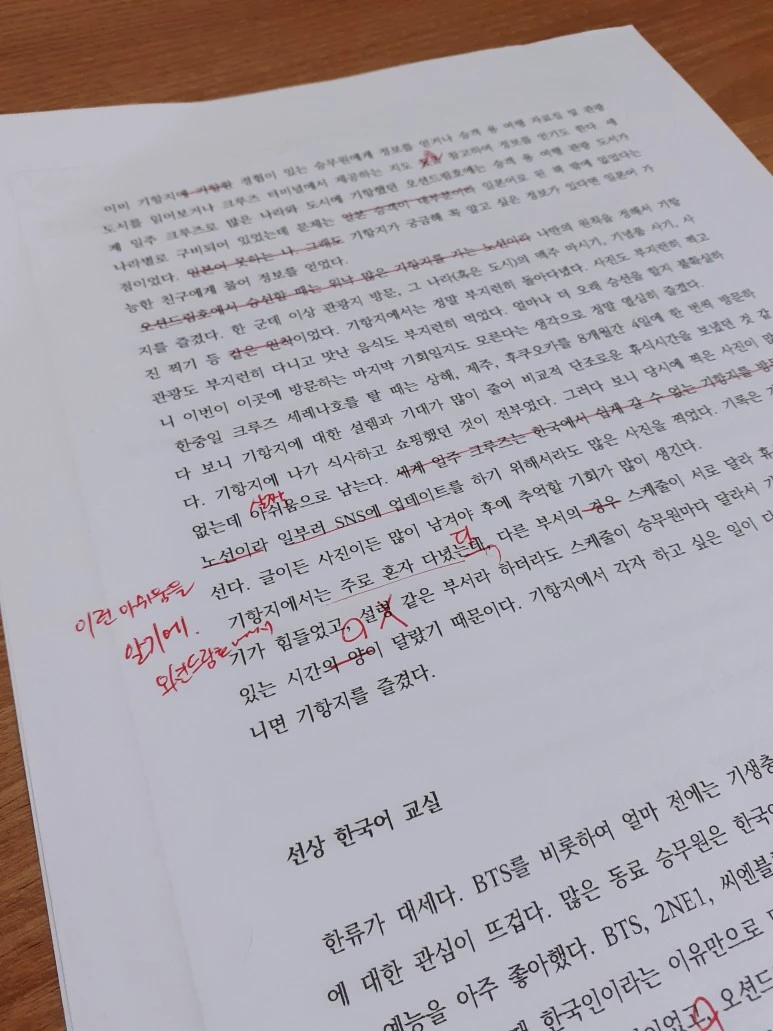 이미 기항지에 기항한 경험이 있는 승무원에게 정보를 얻거나 승객 용 여행 자료집 및 관광
도시를 읽어보거나 크루즈 터미널에서 제공하는 지도 참고하여 정보를 얻기도 한다. 세
계 일주 크루즈로 많은 나라와 도시에 기항했던 오션드림호에는 승객 용 여행 관광 도서가
나라별로 구비되어 있었는데 문제는 일본 승객이 대부분이라 일본어로 된 책 밖에 없었다는
점이었다. 일본어 못하는 나. 그래도 기항지가 궁금해 꼭 알고 싶은 정보가 있다면 일본어 가
능한 친구에게 물어 정보를 얻었다.
오션드림호에서 승선할 때는 워낙 많은 기항지를 가는 노선이라 나만의 원칙을 정해서 기항
지를 즐겼다. 한 군데 이상 관광지 방문, 그 나라(혹은 도시)의 맥주 마시기, 기념품 사기, 사
진 찍기 등 같은 원칙이었다. 기항지에서는 정말 부지런히 돌아다녔다. 사진도 부지런히 찍고
관광도 부지런히 다니고 맛난 음식도 부지런히 먹었다. 얼마나 더 오래 승선을 할지 불확실하
니 이번이 이곳에 방문하는 마지막 기회일지도 모른다는 생각으로 정말 열심히 즐겼다.
한중일 크루즈 세레나호를 탈 때는 상해, 제주, 후쿠오카를 8개월간 4일에 한 번씩 방문하
다 보니 기항지에 대한 설렘과 기대가 많이 줄어 비교적 단조로운 휴식시간을 보냈던 것 같
다. 기항지에 나가 식사하고 쇼핑했던 것이 전부였다. 그러다 보니 당시에 찍은 사진이 많
살짝
없는데 아쉬움으로 남는다. 세계 일주 크루즈는 한국에서 쉽게 갈 수 없는 기항지를 방문
노선이라 일부러 SNS에 업데이트를 하기 위해서라도 많은 사진을 찍었다. 기록은
이런 아쉬움들
선다. 글이든 사진이든 많이 남겨야 후에 추억할 기회가 많이 생긴다.
다
알기에.
기항지에서는 주로 혼자 다녔는데, 다른 부서의 경우 스케줄이 서로 달라 휴
오션드림호에서
기가 힘들었고, 설령 같은 부서라 하더라도 스케줄이 승무원마다 달라서
있는 시간의 양이 달랐기 때문이다. 기항지에서 각자 하고 싶은 일이
니면 기항지를 즐겼다.
선상 한국어 교실
한류가 대세다. BTS를 비롯하여 얼마 전에는 기생충
에 대한 관심이 뜨겁다. 많은 동료 승무원은 한국
예능을 아주 좋아했다. BTS, 2NE1, 씨엔블
한국인이라는 이유만으로
오션드